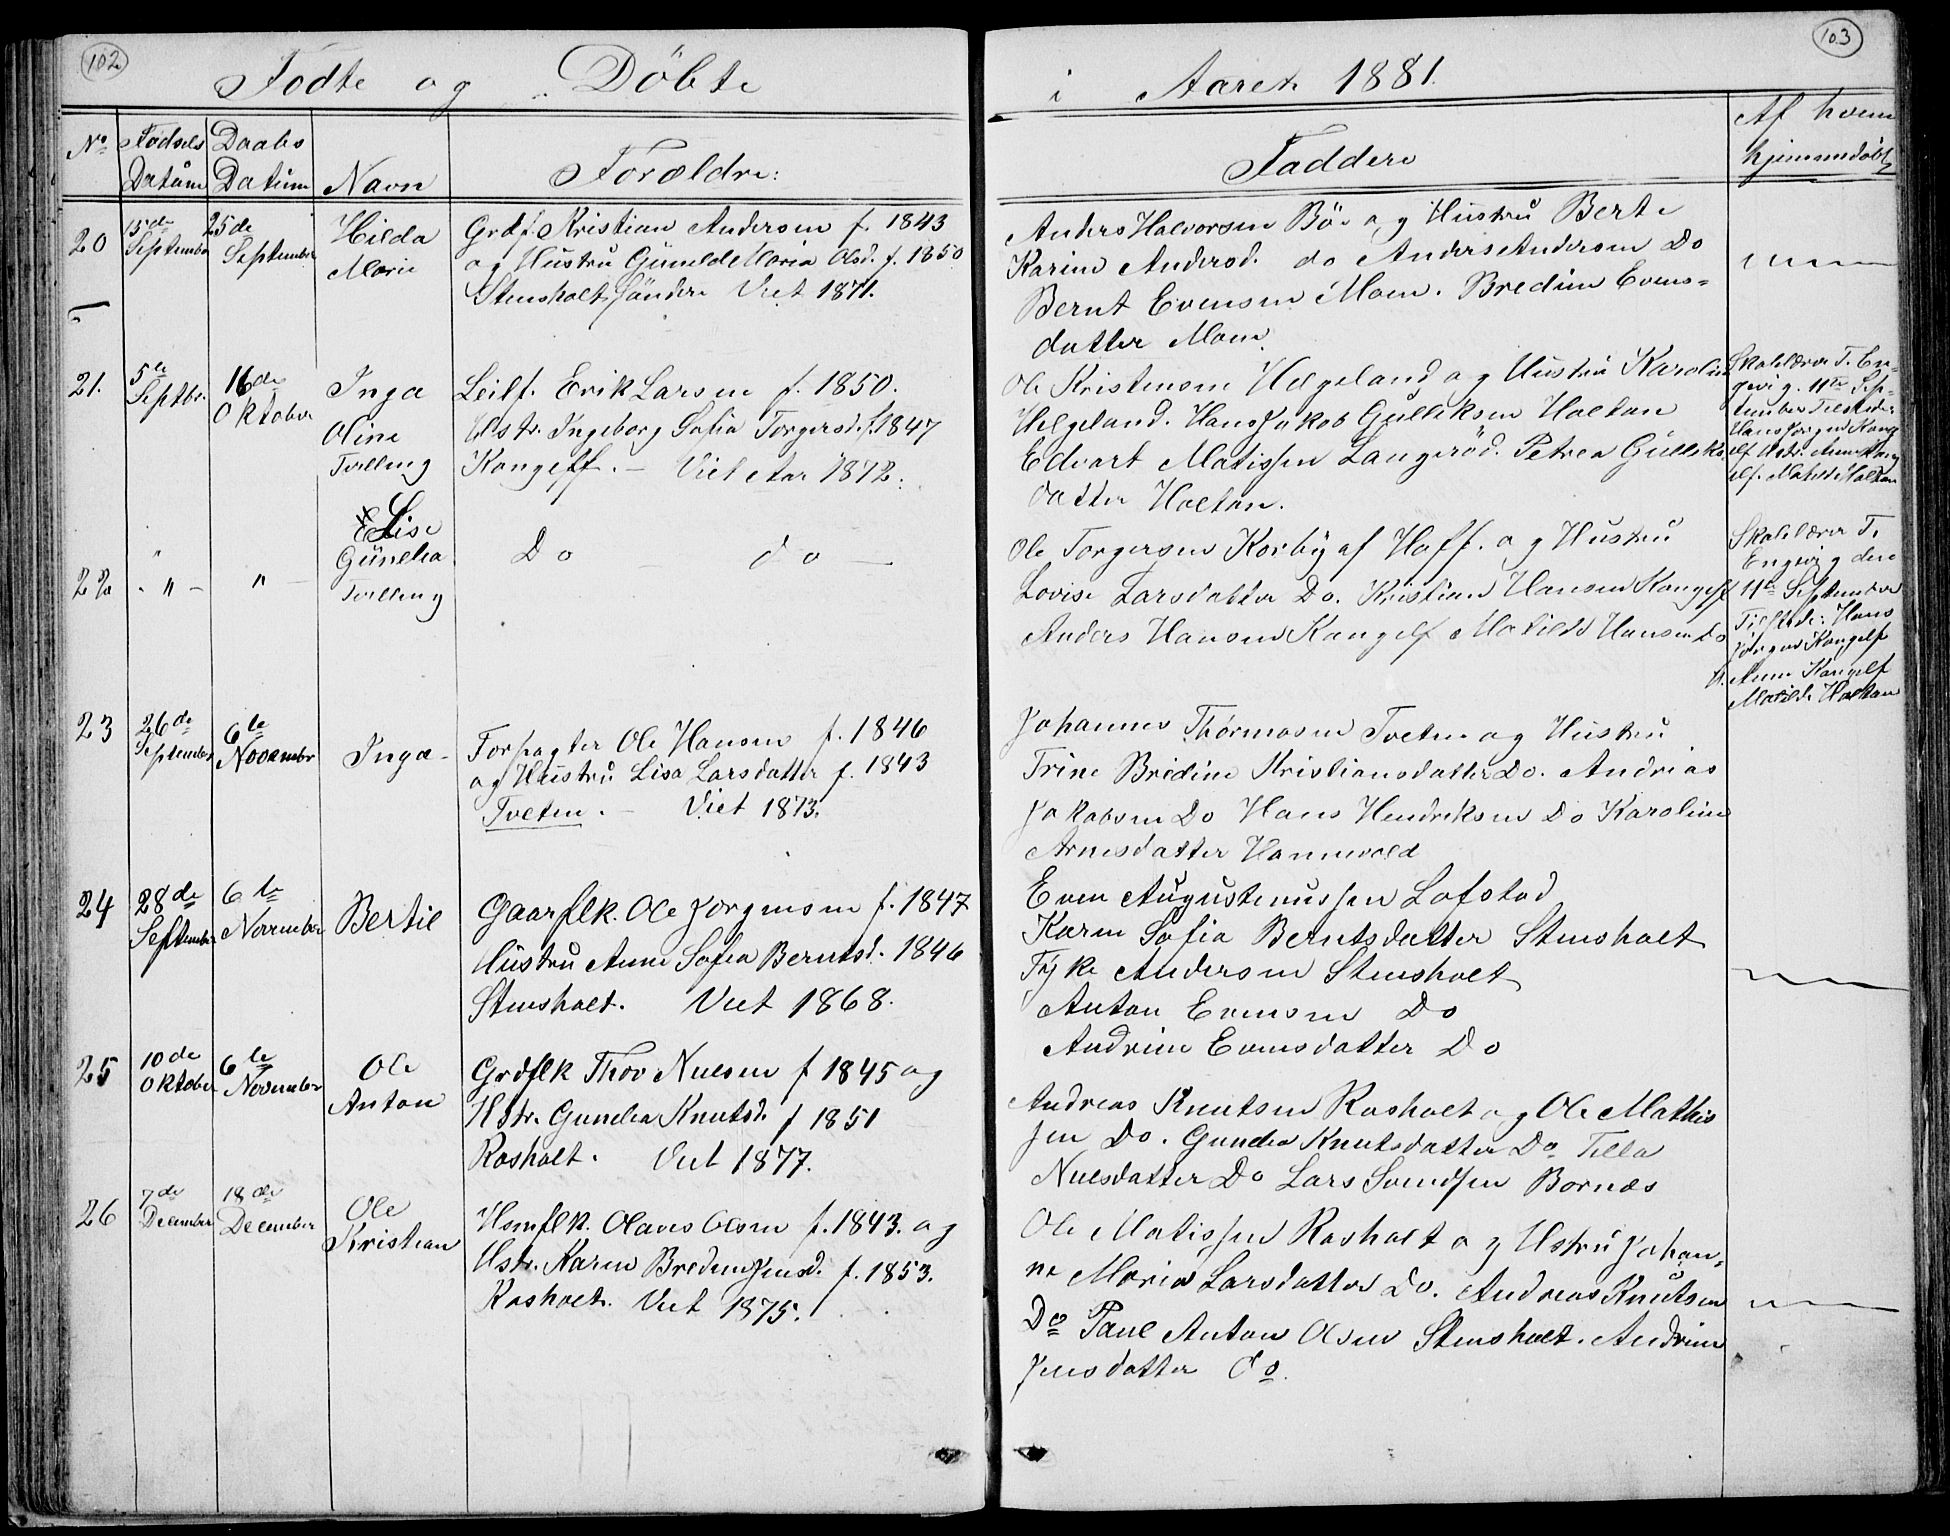 102
Fødte og Döbte
No
Fødsels Datum
Daabs Datum
Navn
Forældre:
20
15de September
25de September
Hilda Marie
Grdf. Kristian Andersen f. 1843
og Hustru Gunild Maria Olsd. f. 1850
Stensholt Söndere Viet 1871.
21.
5te Septbr.
16de Oktober
Inga Oline Tvilling
Leilf. Erik Larsen f. 1850.
Hstr. Ingeborg Sofia Torgersd. f. 1847
Kongelf. — Viet Aar 1872.
22
" — "
Elise Gunelia Tvilling
Do — do —
23
26de September
6te November
Inga
Forpagter Ole Hansen f. 1846
og Hustru Lisa Larsdatter f. 1843
Tveten. — Viet 1873.
24
28de September
6te November
Bertil
Gaarflk. Ole Jorgensen f. 1847
Hustru Anne Sofia Berntsd. 1846
Stensholt. Viet 1868.
25
10de Oktober
6te November
Ole Anton
Grdflk Thov Nielsen f 1845 og
Hstr. Gunelia Knutsd. f 1851
Rasholt. Viet 1877.
26
7de December
18de December
Ole Kristian
Hsmflk. Olaves Olsen f. 1843. og
Hstr. Karen Bredine Jensd. f. 1853.
Rasholt. Viet 1875.
103
i Aaret 1881.
Faddere
Af hvem hjemmedöbt
Anders Halvorsen Bö og Hustru Berte
Karine Andersd. do Anders Andersen Do
Bernt Evensen Moen. Bredine Evens=
datter Moen.
Ole Kristensen Helgeland og Hustru Karoline
Helgeland. Hans Jakob Gulliksen Holtan
Edvart Matissen Langeröd. Petrea Gulliks
datter Holtan.
Skolelærer T. En-
gevig. 11te Sep-
tember Tilstede:
Hans Jörgen Kong
elf Hstr. Anne Kong
elf. Matilde Holtan
Ole Torgersen Korby af Hoff. og Hustru
Lovise Larsdatter Do. Kristian Hansen Kongelf
Anders Hansen Kongelf Matilde Hansen Do
Skolelærer T.
Engevig den
11te September
Tilstede: Hans
Jörgen Kongelf
Anne Kongelf
Matilde Holtan
Johannes Thormosen Tveten og Hustru
Trine Bredine Kristiansdatter Do. Andreas
Jakobsen Do Hans Hendriksen Do Karoline
Arnesdatter Hannevold
Even Augustenussen Lofstad
Karen Sofia Berntsdatter Stensholt
Tyke Andersen Stensholt
Anton Evensen Do
Andrine Evensdatter Do
Andreas Knutsen Rasholt og Ole Mathis
sen Do. Gunelia Knutsdatter Do Tilla
Nielsdatter Do Lars Svendsen Bornes
Ole Matissen Rasholt og Hstru Johan-
ne Maria Larsdatter Do. Andreas Knutsen
Do Paul Anton Olsen Stensholt. Andrine
Jensdatter do.